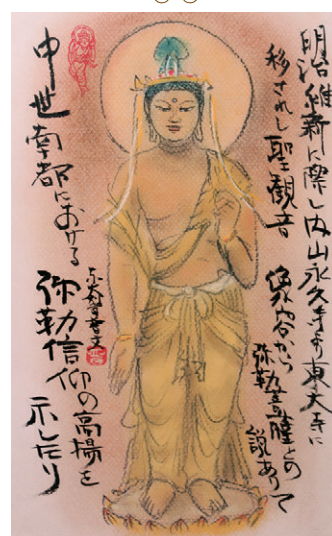 明治維新に際し内山永久寺より東大寺に
移されし聖観音
像容から
弥勒菩薩との
説ありて
中世南都における
弥勒信仰の高揚を
示したり